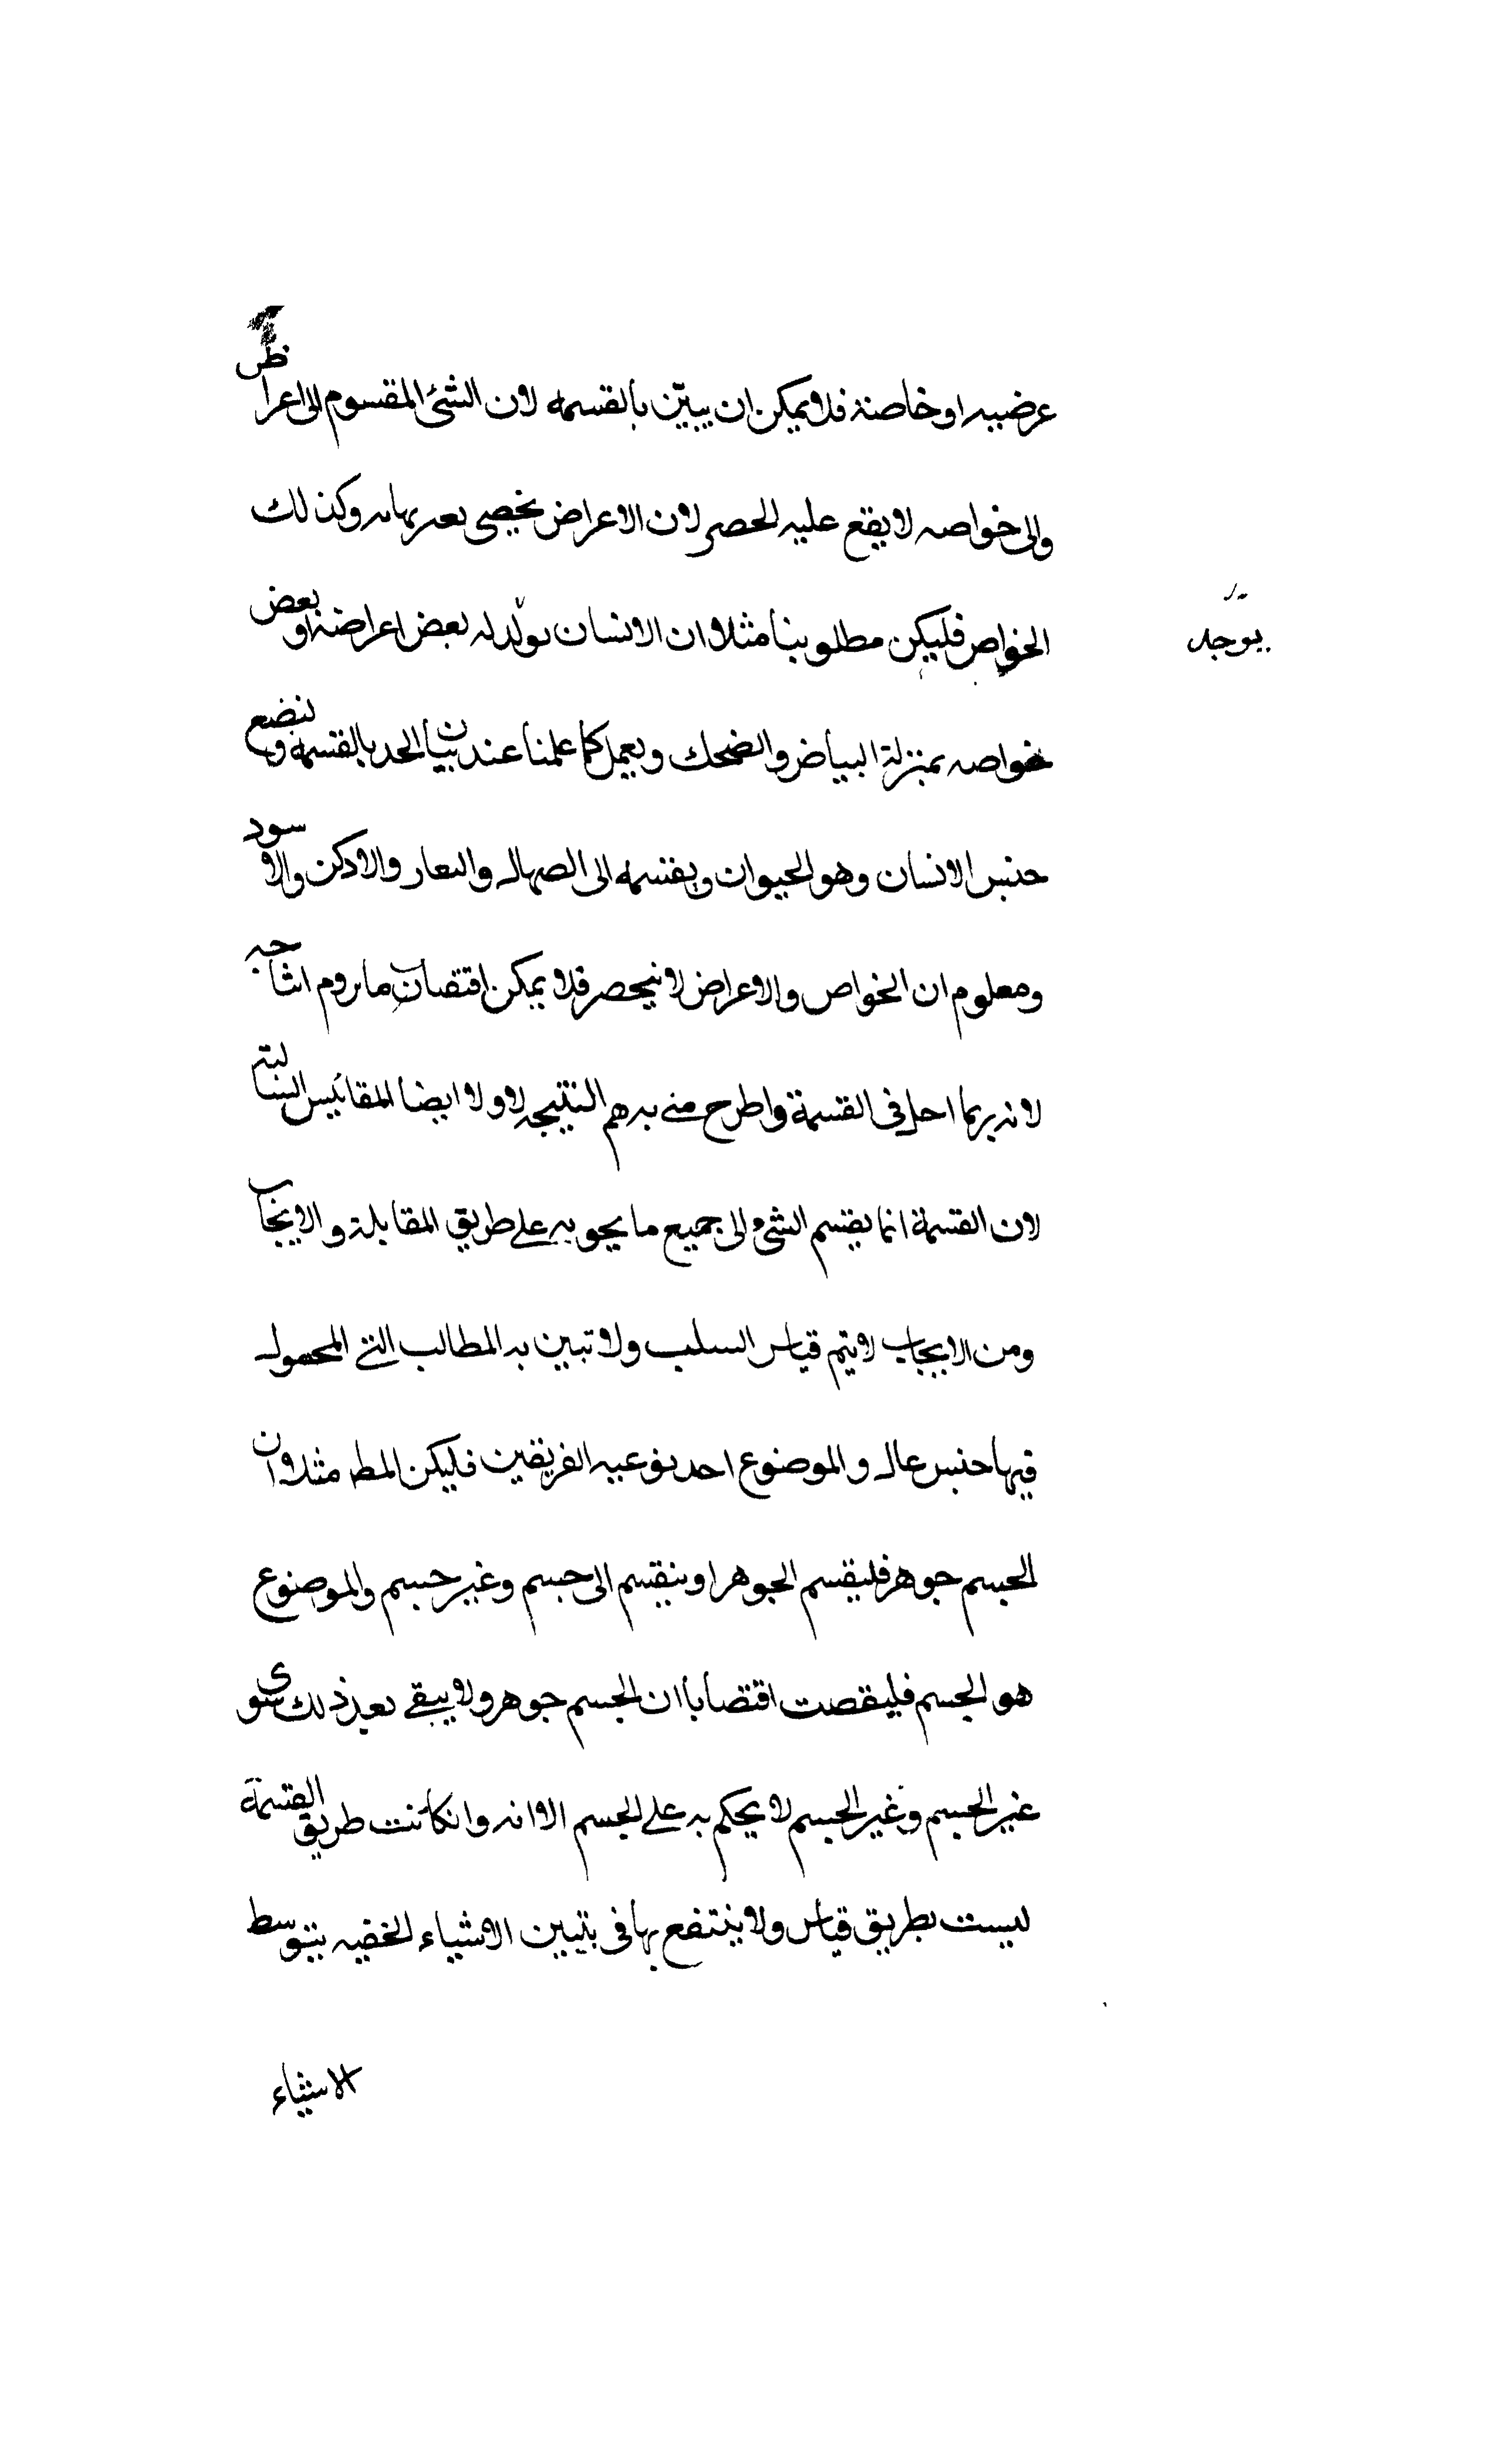 عرضيه او خاصة فلا يمكن ان يبيّن بالقسمه لان الشئ المقسوم الى اعراض
والى خواصه لا يقع عليه الحصر لان الاعراض وكذلك
الخواص فليكن مطلوبنا مثلا ان الانسان له بعض اعراضه او بعض
يوجد
خواصه بمنزلة البياض والضحك ويعمل كما علمنا عند بيان الحد بالقسمه ونضع
جنس الانسان وهو الحيوان ويقسمه الى الصهال والادكن والاسود
ومعلوم ان الخواص والاعراض لا ينحصر فلا يمكن ما يروم
لانه ربما اخل في القسمة واطرح النتيجه لا ولا ايضا المقائيس السالبة
لان القسمة انما يقسم الشئ الى جميع ما يحويه على طريق المقابلة والايجاب
ومن الايجاب لا يتم قياس السلب ولا تبين به المطالب التى المحمول
فيها جنس عال والموضوع احد نوعيه الفريقين فليكن المط مثلا ان
الجسم جوهر فليقسم الجوهر او ينقسم الى جسم وغير جسم والموضوع
هو الجسم فليقصت اقتصابا ان الجسم جوهر ولا يبقى بعد ذلك سوى
غير الجسم وغير الجسم لا يحكم به على الجسم الا انه وان كانت طريق القسمة
ليست بطريق قياس ولا ينتفع بها فى تبيين الاشياء الخفيه بتوسط
الاشياء